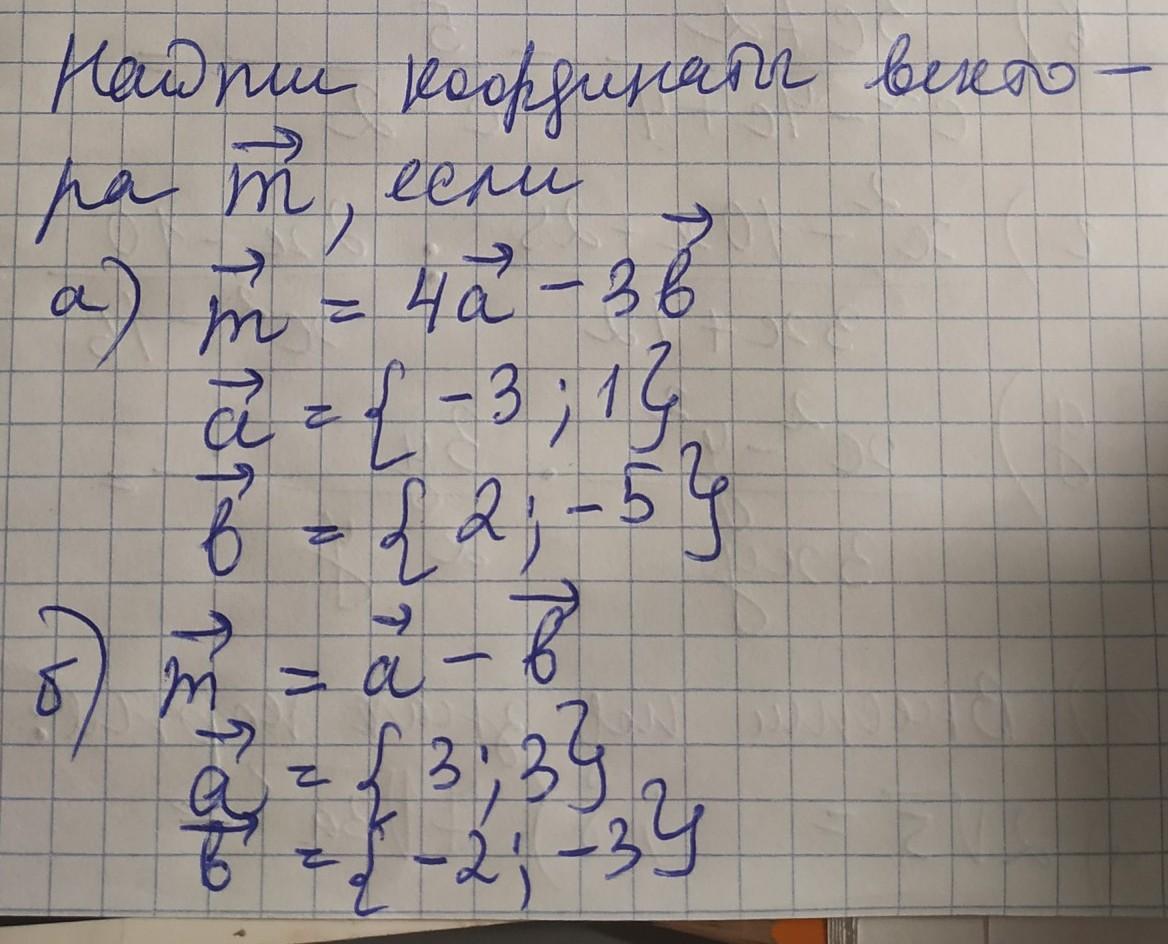 Найти координаты векто-
ра m⃗, если
а) m⃗ = 4a⃗ - 3b⃗
a⃗ = { -3 ; 1}
b⃗ = { 2 ; -5}
б) m⃗ = a⃗ - b⃗
a⃗ = { 3 ; 3}
b⃗ = { -2 ; -3}